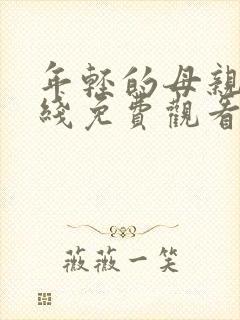 年轻的母親
綫免費觀看
薇薇一笑